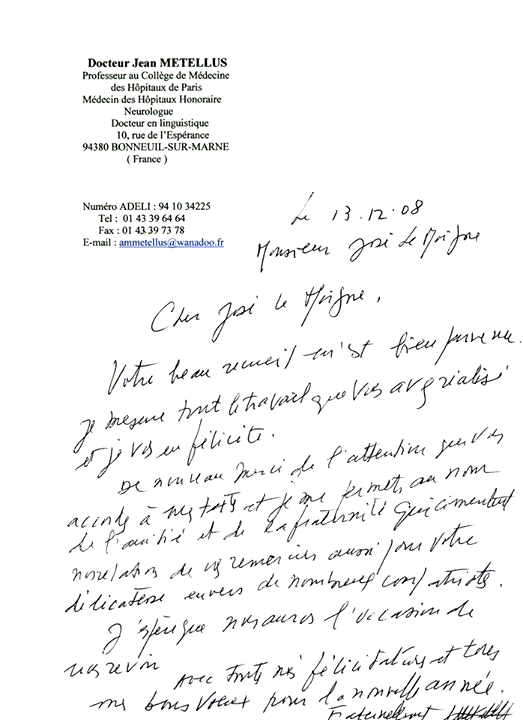 Docteur Jean METELLUS
Professeur au Collège de Médecine
des Hôpitaux de Paris
Médecin des Hôpitaux Honoraire
Neurologue
Docteur en linguistique
10, rue de l'Espérance
94380 BONNEUIL-SUR-MARNE
( France )
Numéro ADELI : 94 10 34225
Tel : 01 43 39 64 64
Fax : 01 43 39 73 78
E-mail : ammetellus@wanadoo.fr
Le 13.12.08
Monsieur José Le Moigne
Cher José Le Moigne,
Votre beau recueil m'est bien parvenu.
Je mesure tout le travail que vous avez réalisé
et je vous en félicite.
De nouveau merci de l'attention que vous
accordez à mes textes et je me permets au nom
de l'amitié et de la fraternité qui cimentent
nos relations de vous remercier aussi pour votre
délicatesse envers de nombreux compatriotes.
J'espère que nous aurons l'occasion de
nous revoir
Avec toutes mes félicitations et tous
mes bons vœux pour la nouvelle année.
Fraternellement